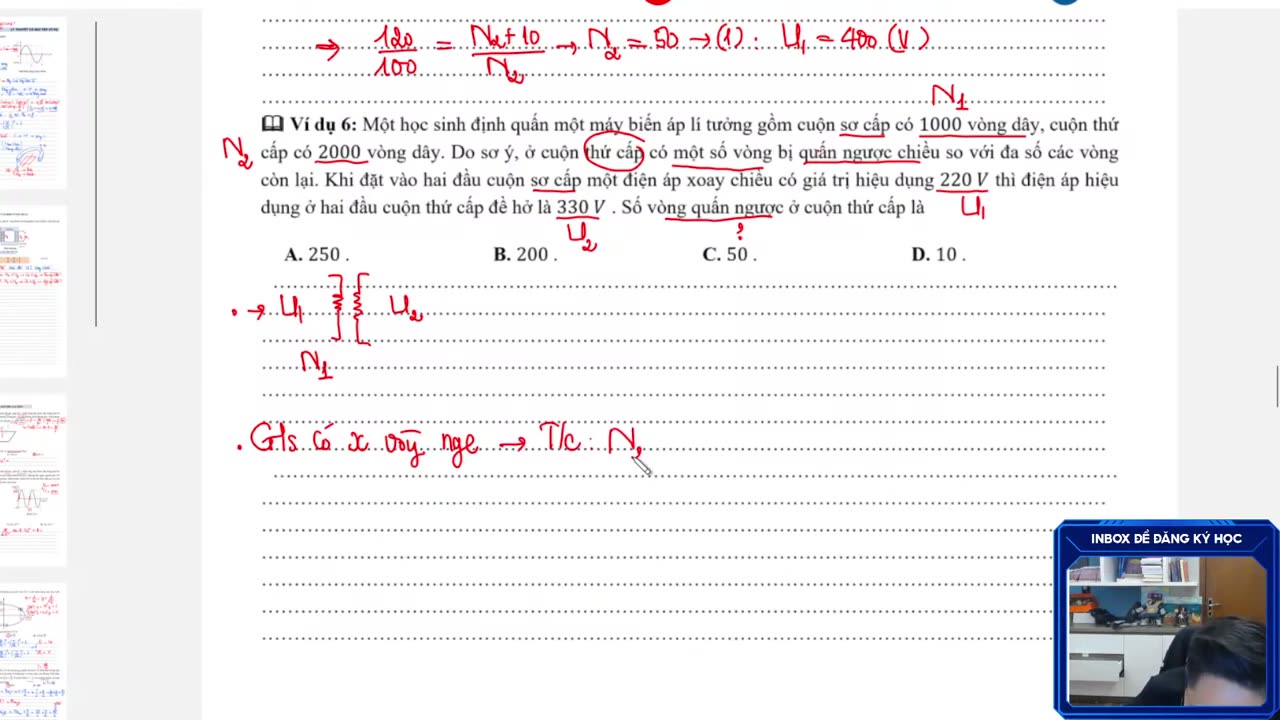 → 120/100 = N₂+10/N₂ → N₂ = 50 → (1) : U₁ = 400 (V)
N₁
Ví dụ 6: Một học sinh định quấn một máy biến áp lí tưởng gồm cuộn sơ cấp có 1000 vòng dây, cuộn thứ
N₂ cấp có 2000 vòng dây. Do sơ ý, ở cuộn thứ cấp có một số vòng bị quấn ngược chiều so với đa số các vòng
còn lại. Khi đặt vào hai đầu cuộn sơ cấp một điện áp xoay chiều có giá trị hiệu dụng 220 V thì điện áp hiệu
dụng ở hai đầu cuộn thứ cấp để hở là 330 V . Số vòng quấn ngược ở cuộn thứ cấp là U₁
U₂ ?
A. 250 . B. 200 . C. 50 . D. 10 .
. → U₁ U₂
N₁
. G/s có x vòng ngc → T/c : N
INBOX ĐỂ ĐĂNG KÝ HỌC